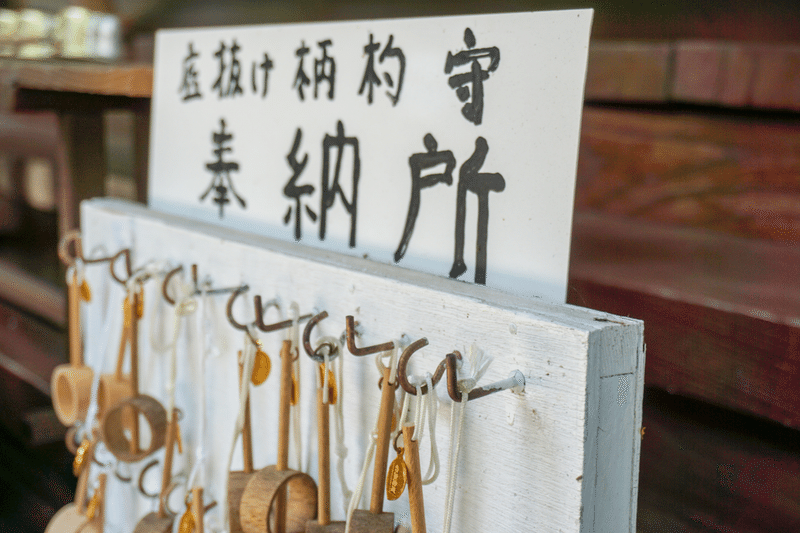 底抜け柄杓守
奉納所